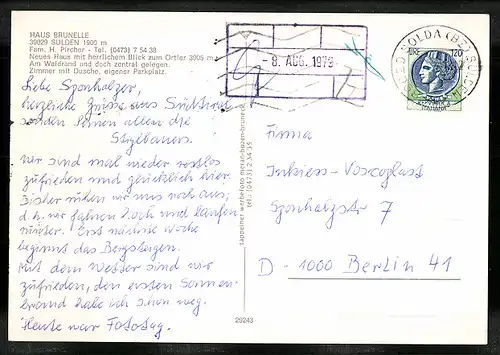 HAUS BRUNELLE
39029 SULDEN 1900 m
Fam. H. Pircher - Tel. (0473) 7 54 38
Neues Haus mit herrlichem Blick zum Ortler 3905 m
Am Waldrand und doch zentral gelegen.
Zimmer mit Dusche, eigener Parkplatz.
Liebe Sponholzer,
herzliche Grüsse aus Südtirol
senden Ihnen allen die
Wir sind mal wieder restlos
zufrieden und glücklich hier.
Bisher ruhen wir uns noch aus;
d.h. wir fahren hoch und laufen
runter. Erst nächste Woche
beginnt das Bergsteigen.
Mit dem Wetter sind wir
zufrieden, den ersten Sonnen-
brand habe ich schon weg.
Heute war Fototag.
tappeiner werbefoto meran-lagen-brunek
tel. (0473) 2 34 35
29243
- 8. AUG. 1979
SOLDA (BZ) SULDEN
120
Firma
Inkiess-Voscoplast
Sponholzstr 7
D-1000 Berlin 41